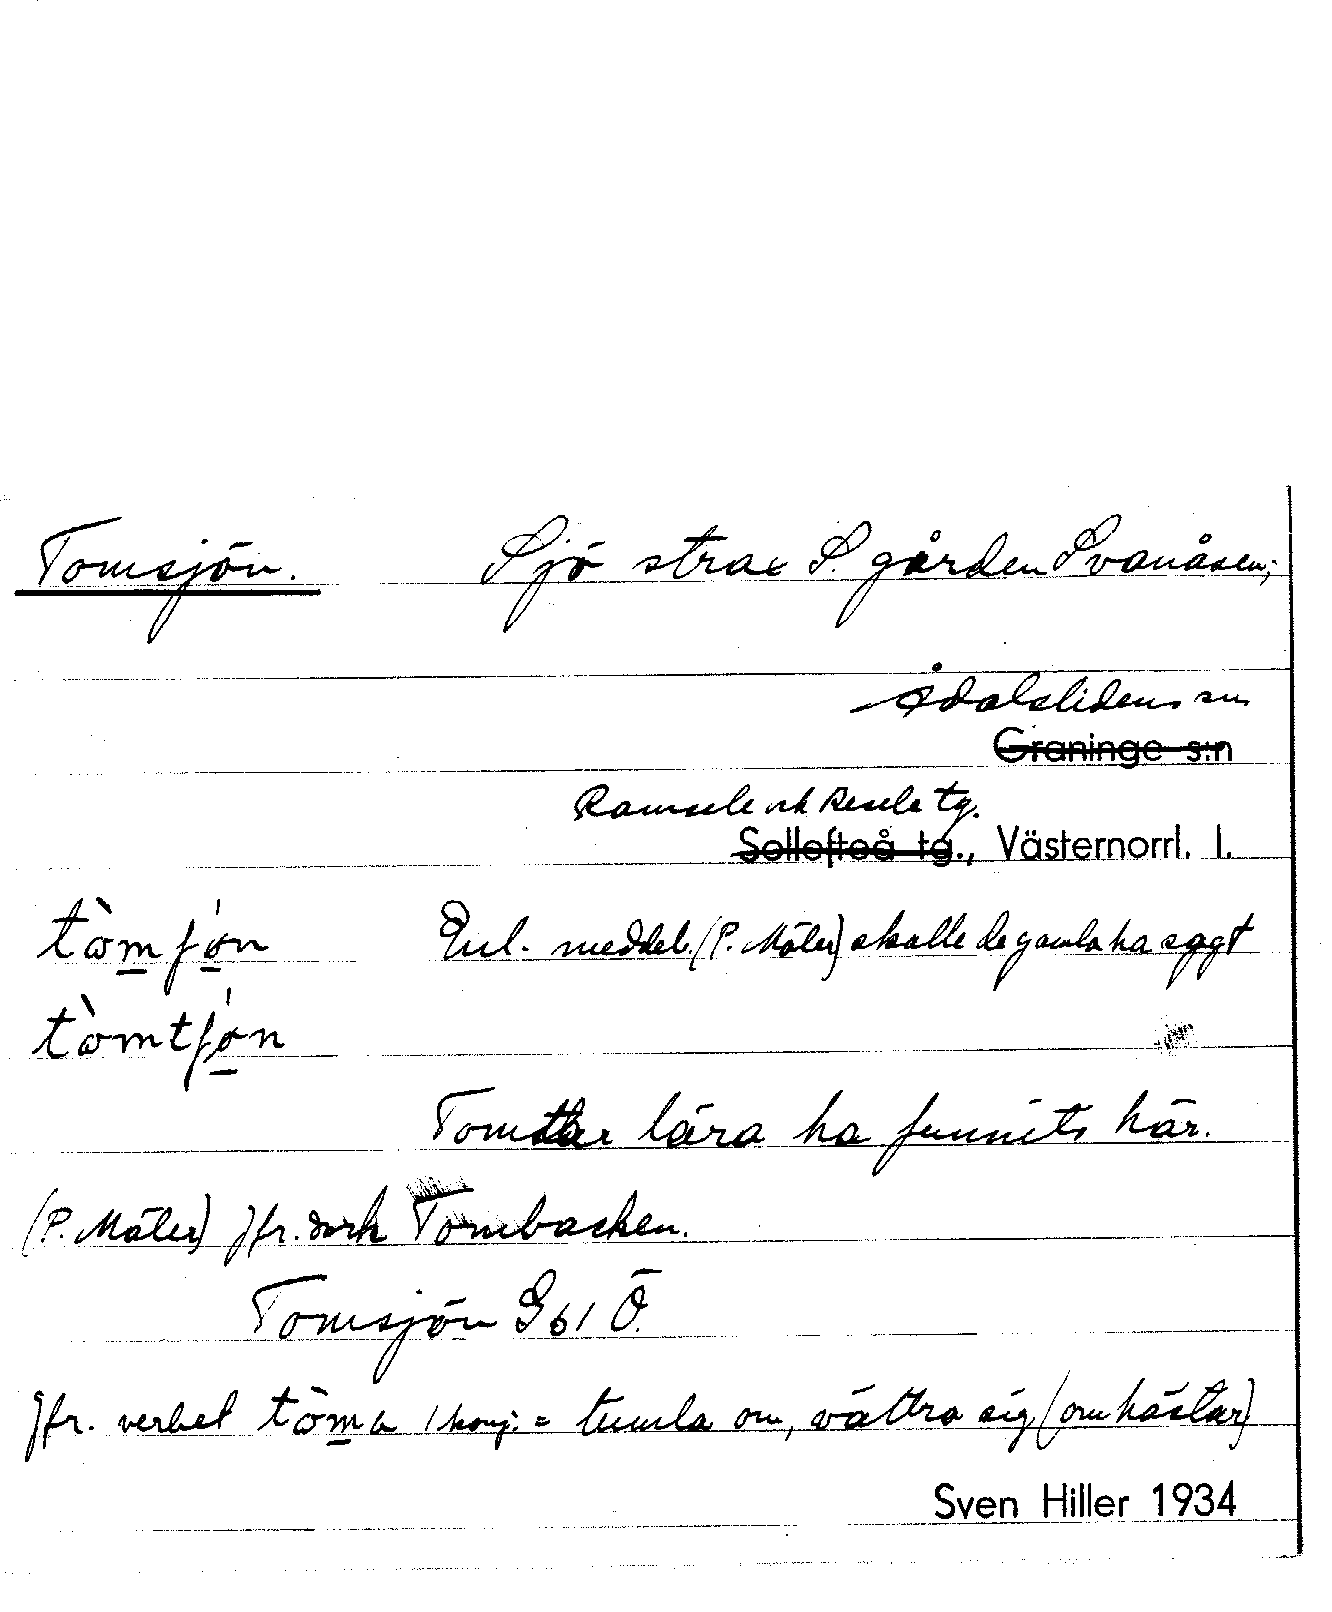 Tomsjön. Sjö strax S. gården Svanåsen;
Ådalslidens sn
Graninge s:n
Ramsele och Resele tg.
Sollefteå tg., Västernorrl. l.
tòmʃøn Enl. meddel. (P. Mäler) skalle de gamla ha sagt
tòmtʃøn
Tomtar lära ha funnits här.
(P. Mäler) Jfr. dock Tombacken.
Tomsjön G 61 Ö.
Jfr. verbet tòma 1 konj. = tumla om, vältra sig (om hästar)
Sven Hiller 1934